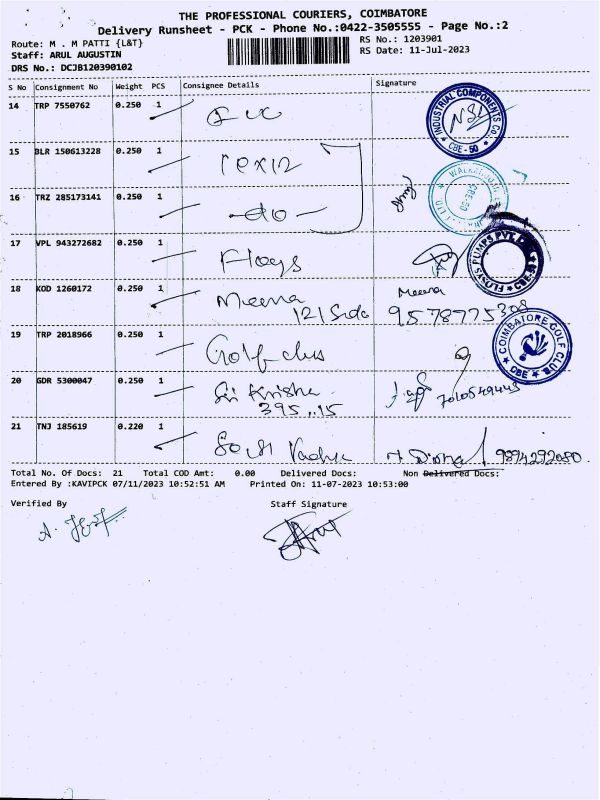 THE PROFESSIONAL COURIERS, COIMBATORE
Delivery Runsheet - PCK - Phone No.:0422-3505555 - Page No.:2
Route: M . M PATTI {L&T}
RS No.: 1203901
Staff: ARUL AUGUSTIN
RS Date: 11-Jul-2023
DRS No.: DCJB120390102
S No Consignment No Weight PCS Consignee Details Signature
14 TRP 7550762 0.250 1
INDUSTRIAL COMPONENTS CO.
CBE - 50
15 BLR 150613228 0.250 1
rexin
16 TRZ 285173141 0.250 1
-do-
17 VPL 943272682 0.250 1
FLOSYS PUMPS PVT. LTD.
18 KOD 1260172 0.250 1
Meena Meena
121 Sido
19 TRP 2018966 0.250 1
Golf club
COIMBATORE GOLF CLUB
CBE
20 GDR 5300047 0.250 1
Sri Krisha
21 TNJ 185619 0.220 1
Total No. Of Docs: 21 Total COD Amt: 0.00 Delivered Docs: Non Delivered Docs:
Entered By :KAVIPCK 07/11/2023 10:52:51 AM Printed On: 11-07-2023 10:53:00
Verified By Staff Signature